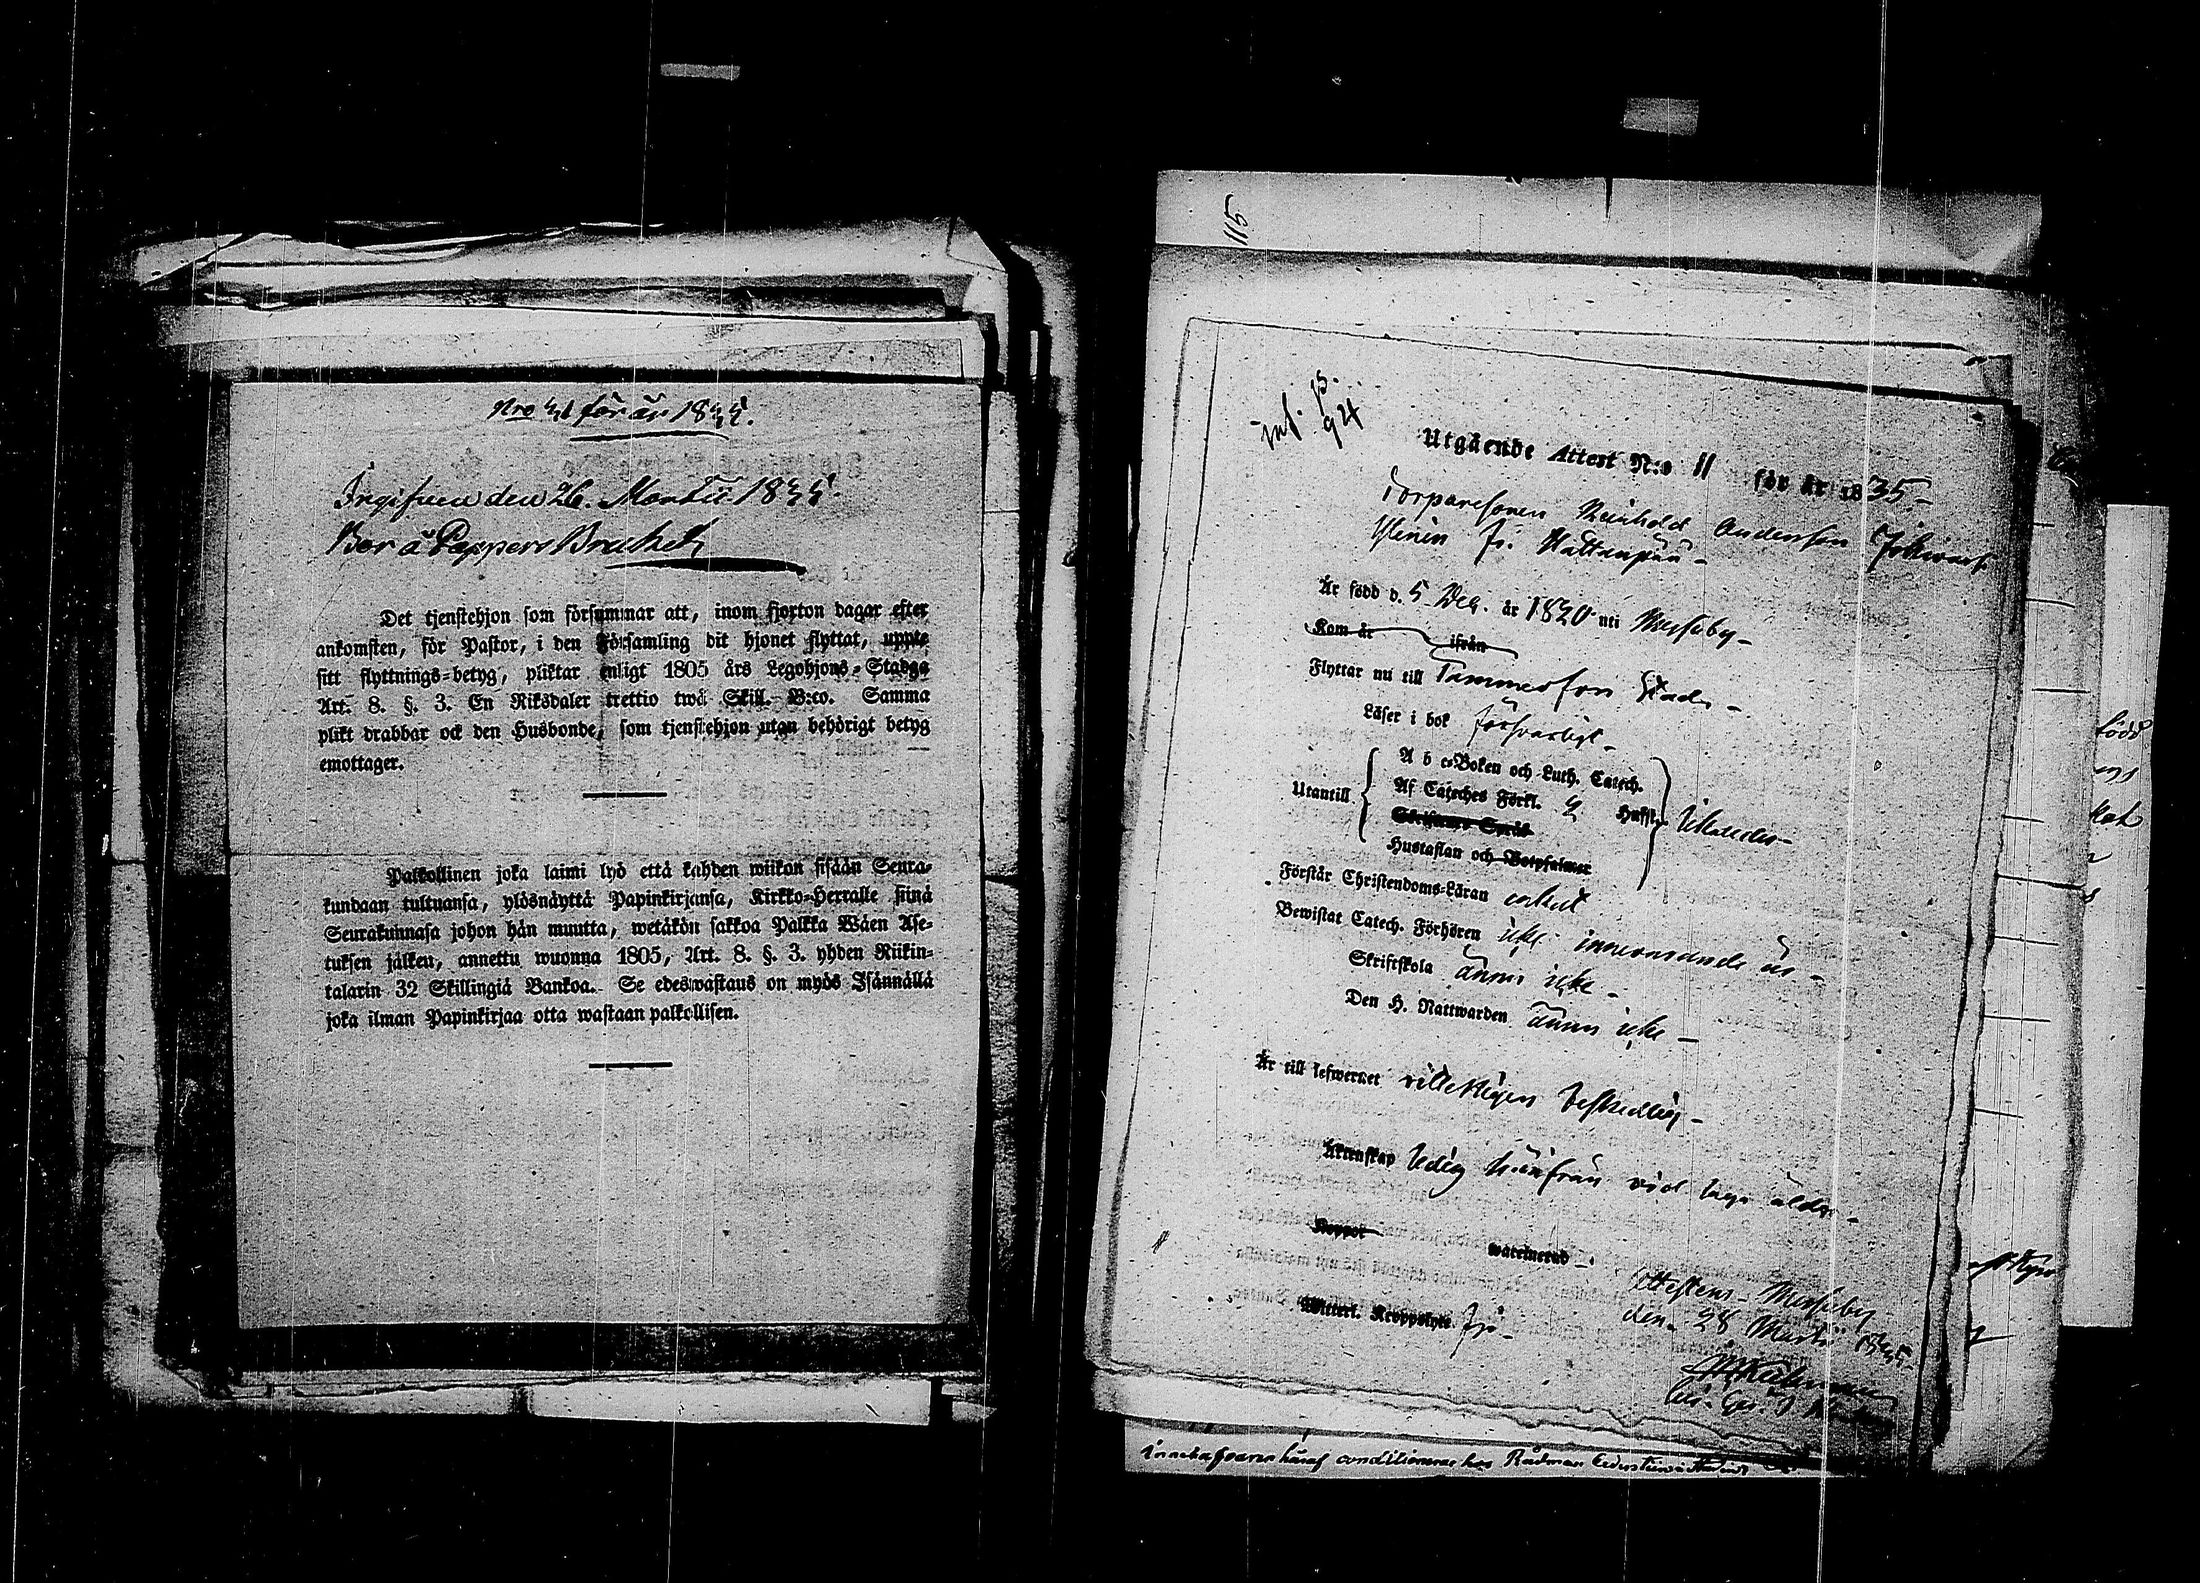 Nro 41 för år 1835.
Ingifven den 26. Martii 1835.
Bor å Pappers Bruket
Det tjenstehjon som försummar att, inom fjorton dagar efter
ankomsten, för Pastor, i den Församling dit hjonet flyttat, uppte
sitt flyttnings-betyg, pliktar enligt 1805 års Legohjons-Stadga
Art. 8. §. 3. En Riksdaler trettio twå Skill. B:co. Samma
plikt drabbar ock den Husbonde, som tjenstehjon utan behörigt betyg
emottager.
Palkollinen joka laimi lyö että kahden wiikon sisään Seura-
kundaan tultuansa, ylösnäyttä Papinkirjansa, Kirkko-Herralle siinä
Seurakunnasa johon hän muutta, wetäkön sakkoa Palkka Wäen Ase-
tuksen jälken, annettu wuonna 1805, Art. 8. §. 3. yhden Riikin-
talarin 32 Skillingiä Bankoa. Se edeswastaus on myös Isännällä
joka ilman Papinkirjaa otta wastaan palkollisen.
115
inf. p.
94
Utgående Attest N:o 11 för år 1835.
Torparesonen Reinhold Andersson
fr. Hattanpää
Är född d. 5 Dec. år 1820 uti Messuby
Kom år ifrån
Flyttar nu till Tammerfors Stad
Läser i bok försvarligt
A b c-Boken och Luth. Catech.
Utantill Af Cateches Förkl. 2 Hufst.
Skriftenes Språk
Hustaflan och Botpsalmer
Förstår Christendoms-Läran enkelt
Bewistat Catech. Förhören innevarande år
Skriftskola ännu icke
Den H. Nattwarden ännu icke
Är till lefwernet beskedlig
Äktenskap ledig härifrån vid laga ålder
Koppor waccinerad
Witterl. Kroppslyte
Attesteras Messuby
den 28 Martii 1835.
Innehafvaren häraf conditionerar hos Rådman